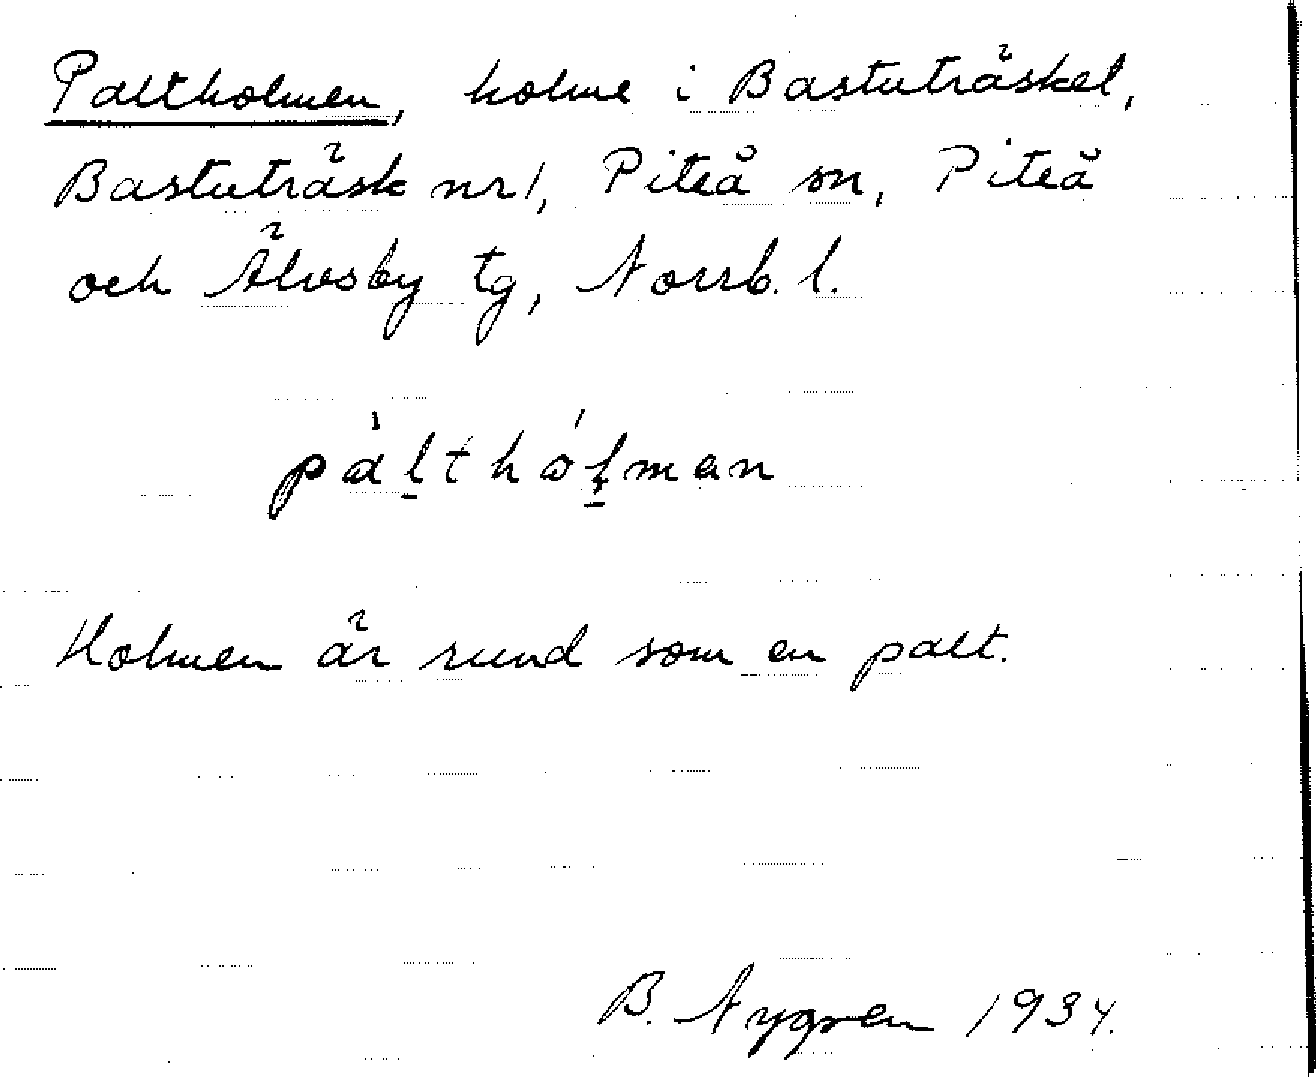 Paltholmen, holme i Bastuträsket,
Bastuträsk nr 1, Piteå sn, Piteå
och Älvsby tg, Norrb. l.
pàlthólman
Holmen är rund som en palt.
B. Nygren 1934.